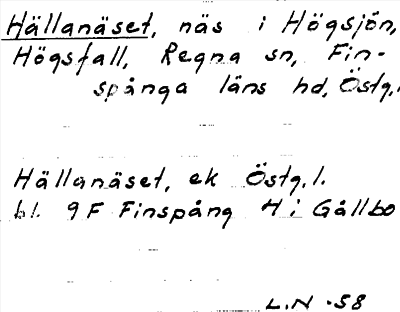 Hällanäset, näs i Högsjön,
Högsfall, Regna sn, Fin-
spånga läns hd, Östg.l.
Hällanäset, ek Östg.l.
bl. 9F Finspång H i Gållbo
L.N -58